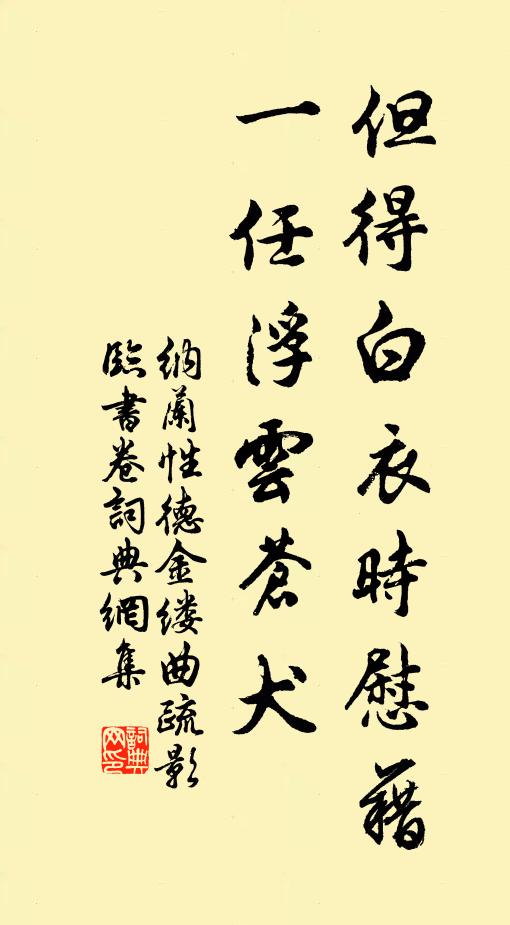 但得白衣時慰藉
一任浮雲蒼犬
納蘭性德金缕曲疏影
臨書卷詞典網集
詞典
网印